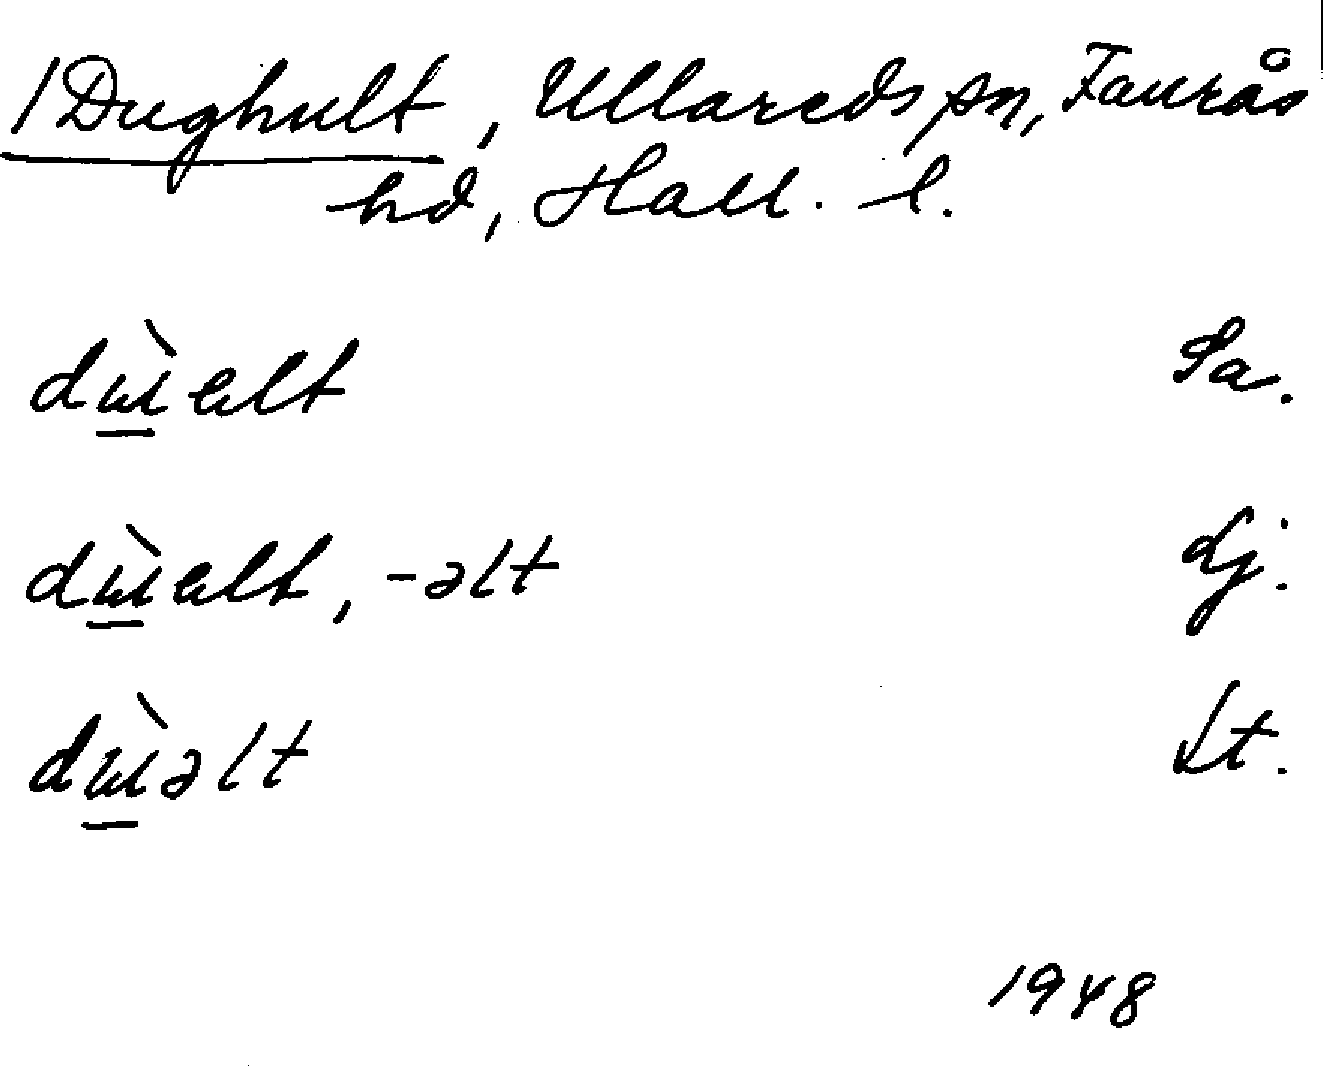 /Dughult, Ullareds sn, Faurås
hd, Hall. l.
dɯ̲̀ elt Sa.
dɯ̲̀ elt, -əlt Lj.
dɯ̲̀əlt Lt.
1948